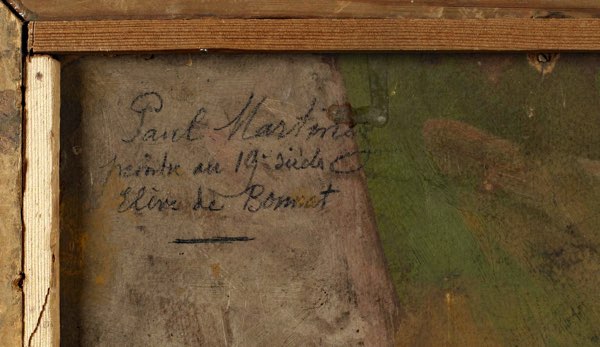 Paul Martin
peintre au 19e siècle
Elève de Bonnat